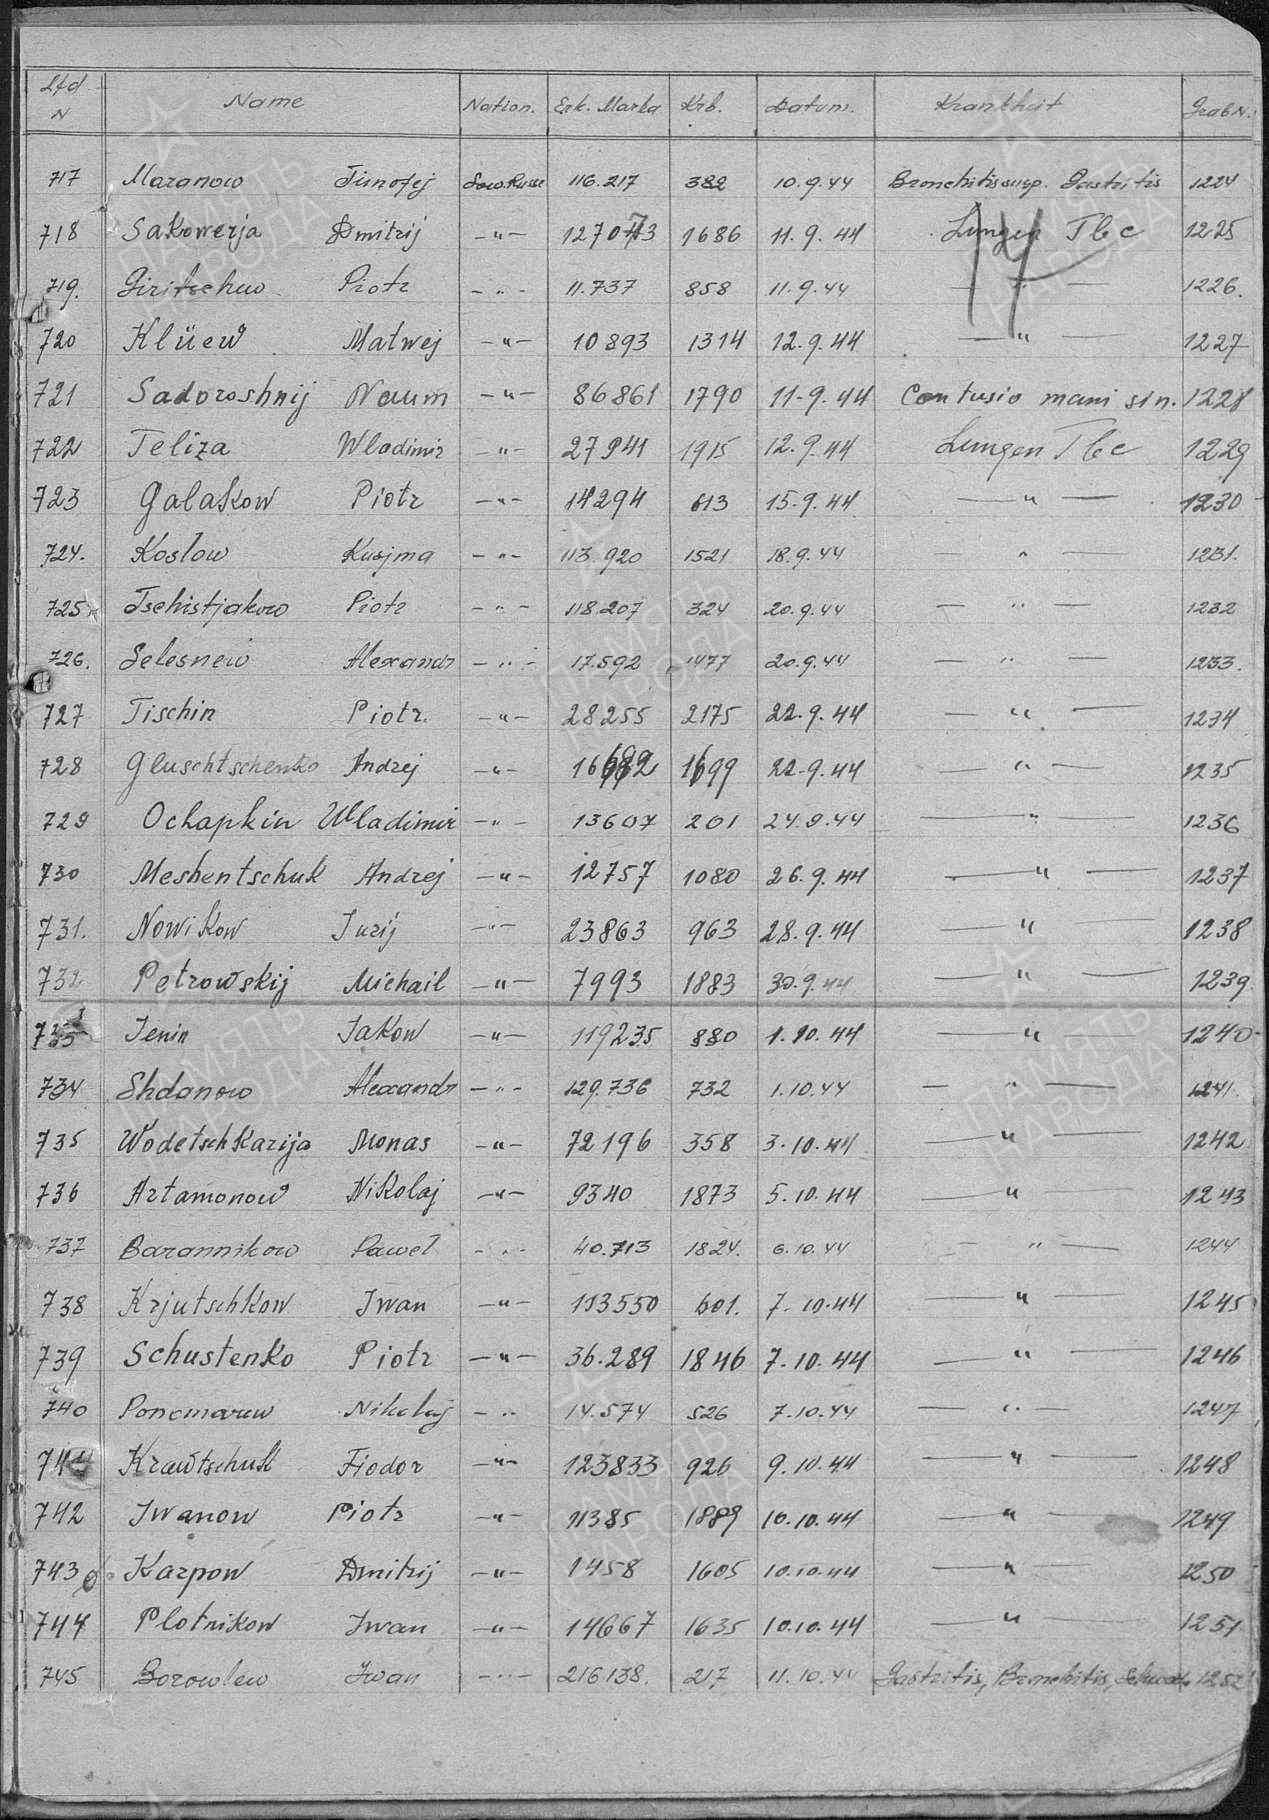 Lfd N Name Nation. Erk. Marka Krb. Datum. Krankheit Grab N.
717 Maranow Timofej Sow.Russe 116.217 382 10.9.44 Bronchitis susp. Gastritis 1224
718 Sakowerja Dmitrij -"- 127073 1686 11.9.44 Lungen Tbc 1225
719. Piotr -"- 11.737 858 11.9.44 -"- 1226.
720 Klüew Matwej -"- 10893 1314 12.9.44 -"- 1227
721 Sadoroshnij Naum -"- 86861 1790 11.9.44 Contusio mani sin. 1228
722 Teliza Wladimir -"- 27941 1915 12.9.44 Lungen Tbc 1229
723 Galakow Piotr -"- 14294 613 15.9.44 -"- 1230
724. Koslow Kusjma -"- 113.920 1521 18.9.44 -"- 1231.
725 Tschistjakow Piotr -"- 118.207 324 20.9.44 -"- 1232
726. Selesnew Alexandr -"- 17.592 1477 20.9.44 -"- 1233.
727 Tischin Piotr. -"- 28255 2175 22.9.44 -"- 1234
728 Gluschtschenko Andrej -"- 1699 22.9.44 -"- 1235
729 Ochapkin Wladimir -"- 13607 201 24.9.44 -"- 1236
730 Meshentschuk Andrej -"- 12757 1080 26.9.44 -"- 1237
731. Nowikow Jurij -"- 23863 963 28.9.44 -"- 1238
732 Petrowskij Michail -"- 7993 1883 30.9.44 -"- 1239
733 Jenin Jakow -"- 119235 880 1.10.44 -"- 1240
734 Shdanow Alexandr -"- 129.736 732 1.10.44 -"- 1241.
735 Wodetschkarija Monas -"- 72196 358 3.10.44 -"- 1242
736 Artamonow Nikolaj -"- 9340 1873 5.10.44 -"- 1243
737 Barannikow Paweł -"- 40.713 1824. 6.10.44 -"- 1244
738 Krjutschkow Iwan -"- 113550 601. 7.10.44 -"- 1245
739 Schustenko Piotr -"- 36.289 1846 7.10.44 -"- 1246
740 Ponomarew Nikolaj -"- 14.574 526 7.10.44 -"- 1247
741 Krawtschuk Fiodor -"- 123833 926 9.10.44 -"- 1248
742 Iwanow Piotr -"- 11385 1889 10.10.44 -"- 1249
743 Karpow Dmitrij -"- 1458 1605 10.10.44 -"- 1250
744 Plotnikow Iwan -"- 14667 1635 10.10.44 -"- 1251
745 Borowlew Iwan -"- 216138. 217 11.10.44 Gastritis, Bronchitis, 1252